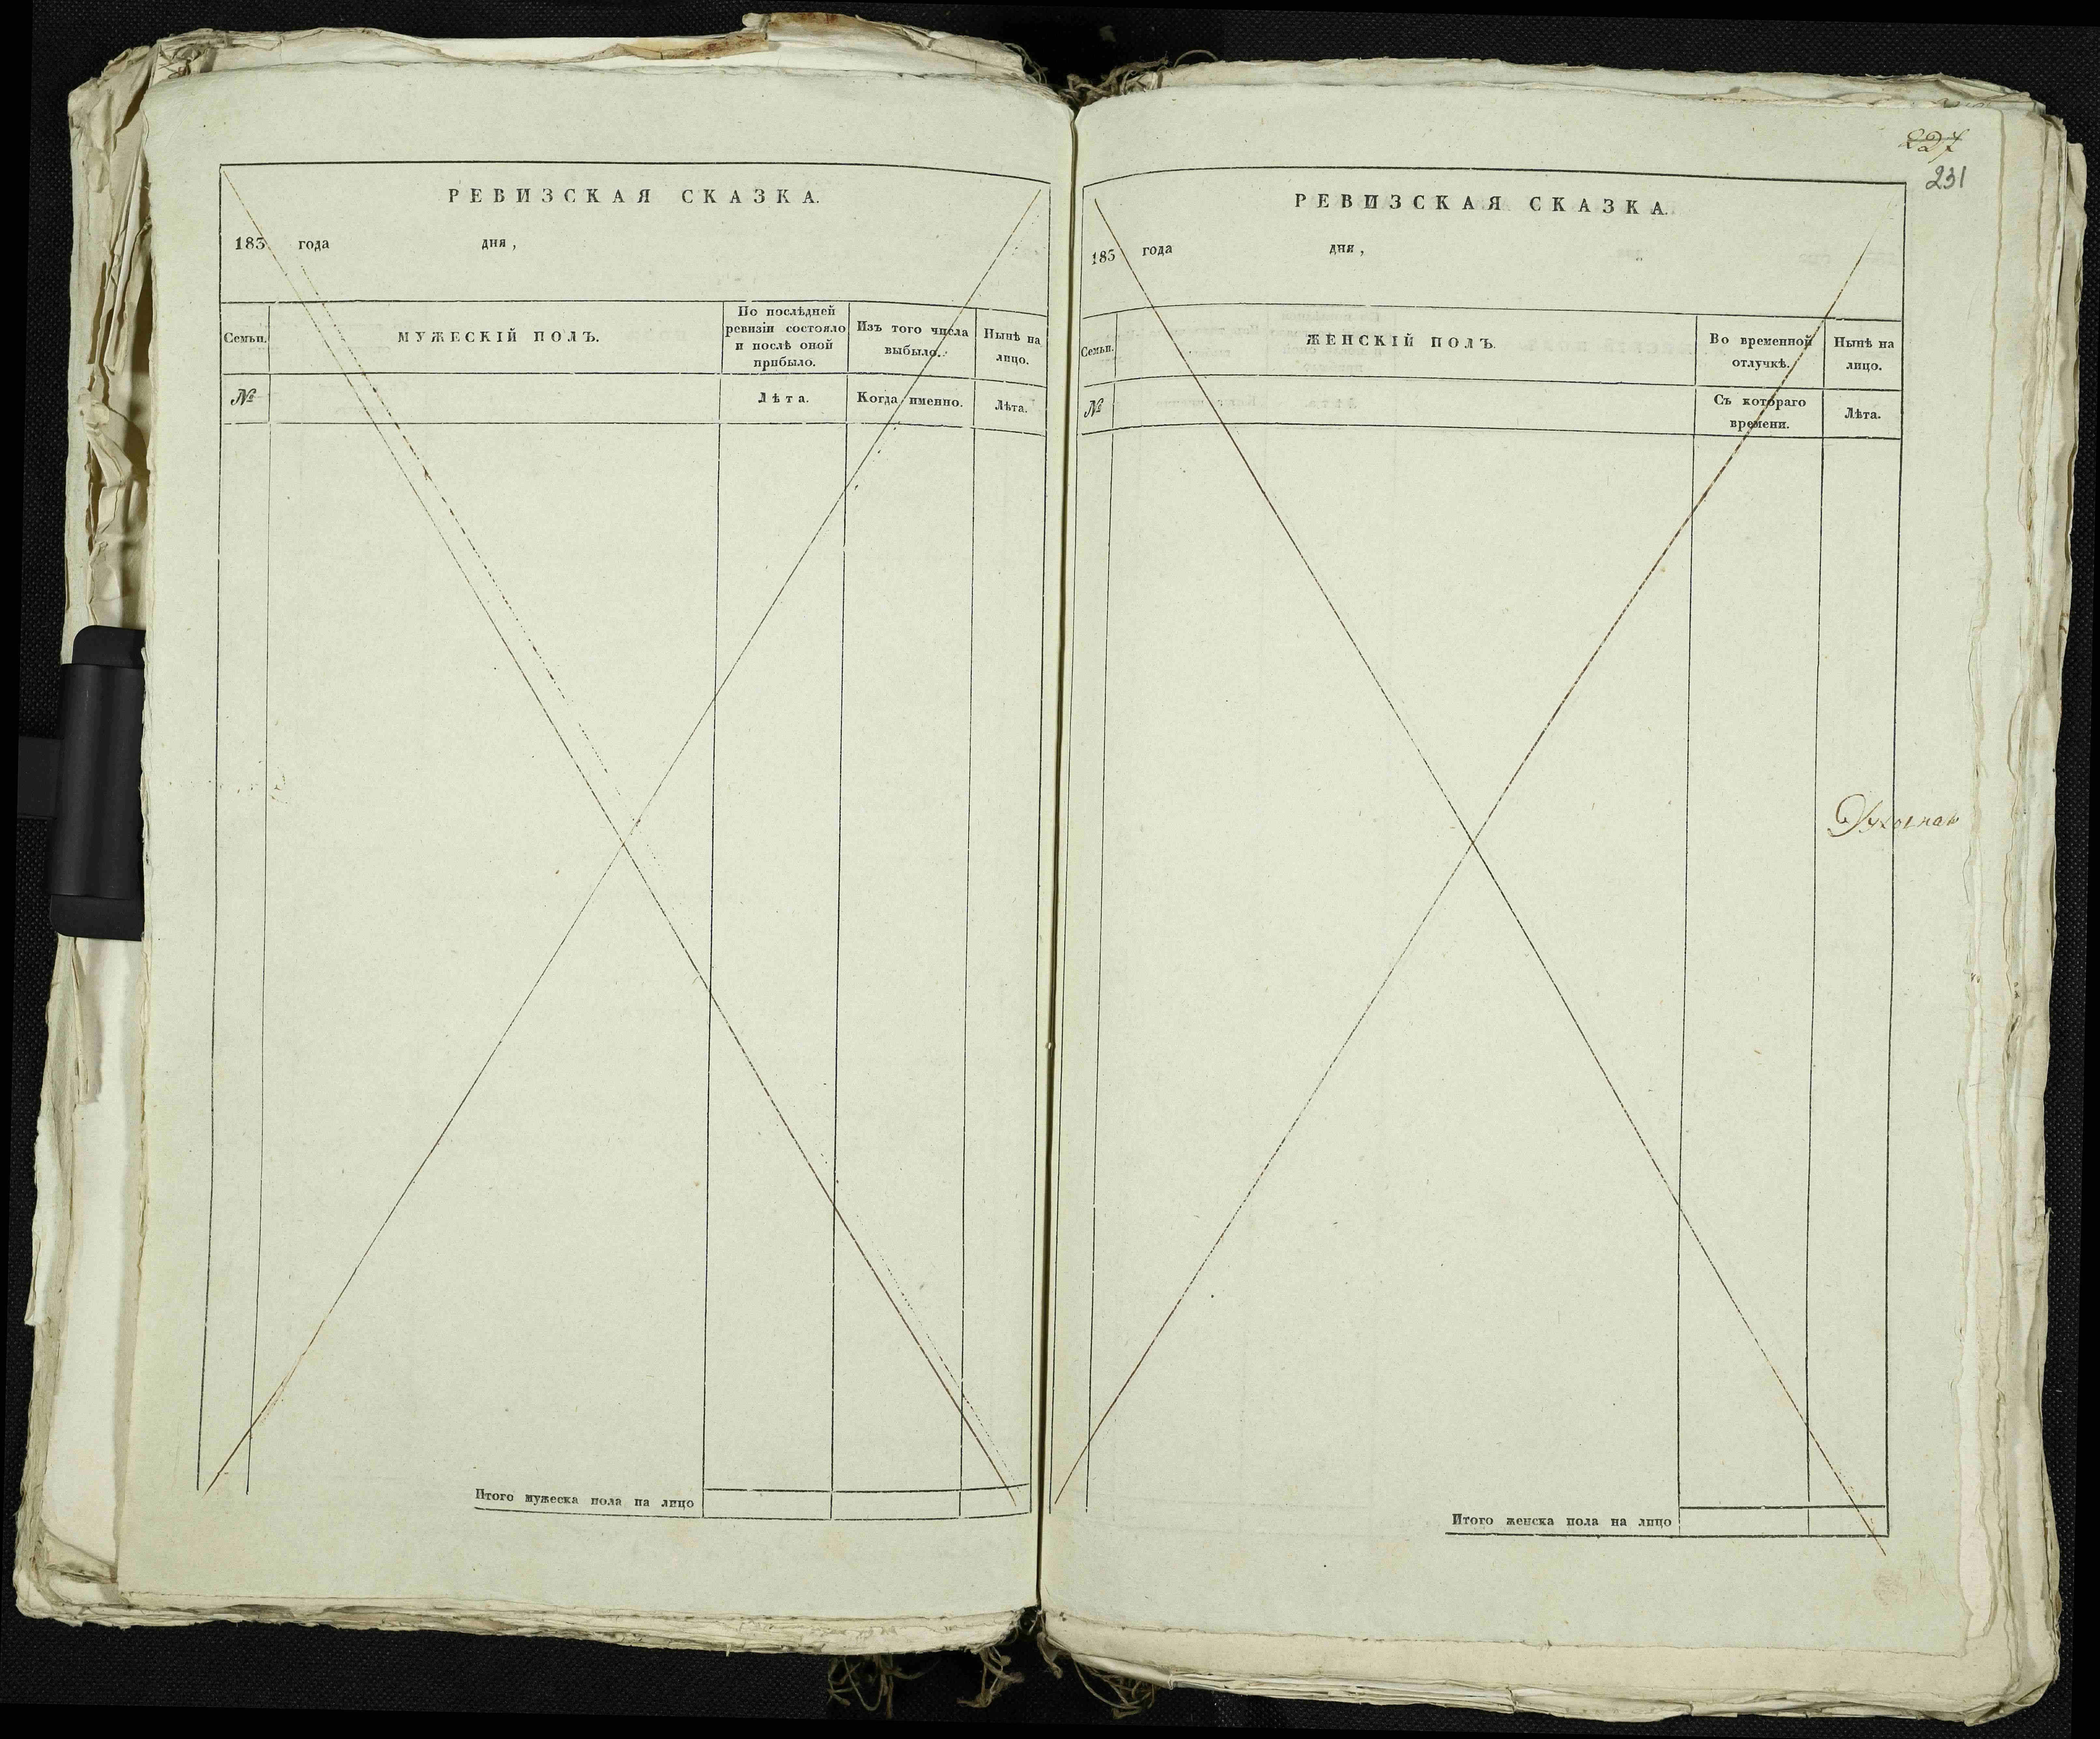 РЕВИЗСКАЯ СКАЗКА.
185 года дня ,
Семьи.
МУЖЕСКІЙ ПОЛЪ.
По послѣдней
ревизіи состояло
и послѣ оной
прибыло.
Изъ того числа
выбыло.
Нынѣ на
лицо.
№
Лѣта.
Когда именно.
Лѣта.
Итого мужеска пола на лицо
227
231
РЕВИЗСКАЯ СКАЗКА.
185 года дня ,
Семьи.
ЖЕНСКІЙ ПОЛЪ.
Во временной
отлучкѣ.
Нынѣ на
лицо.
№
Съ котораго
времени.
Лѣта.
Итого женска пола на лицо